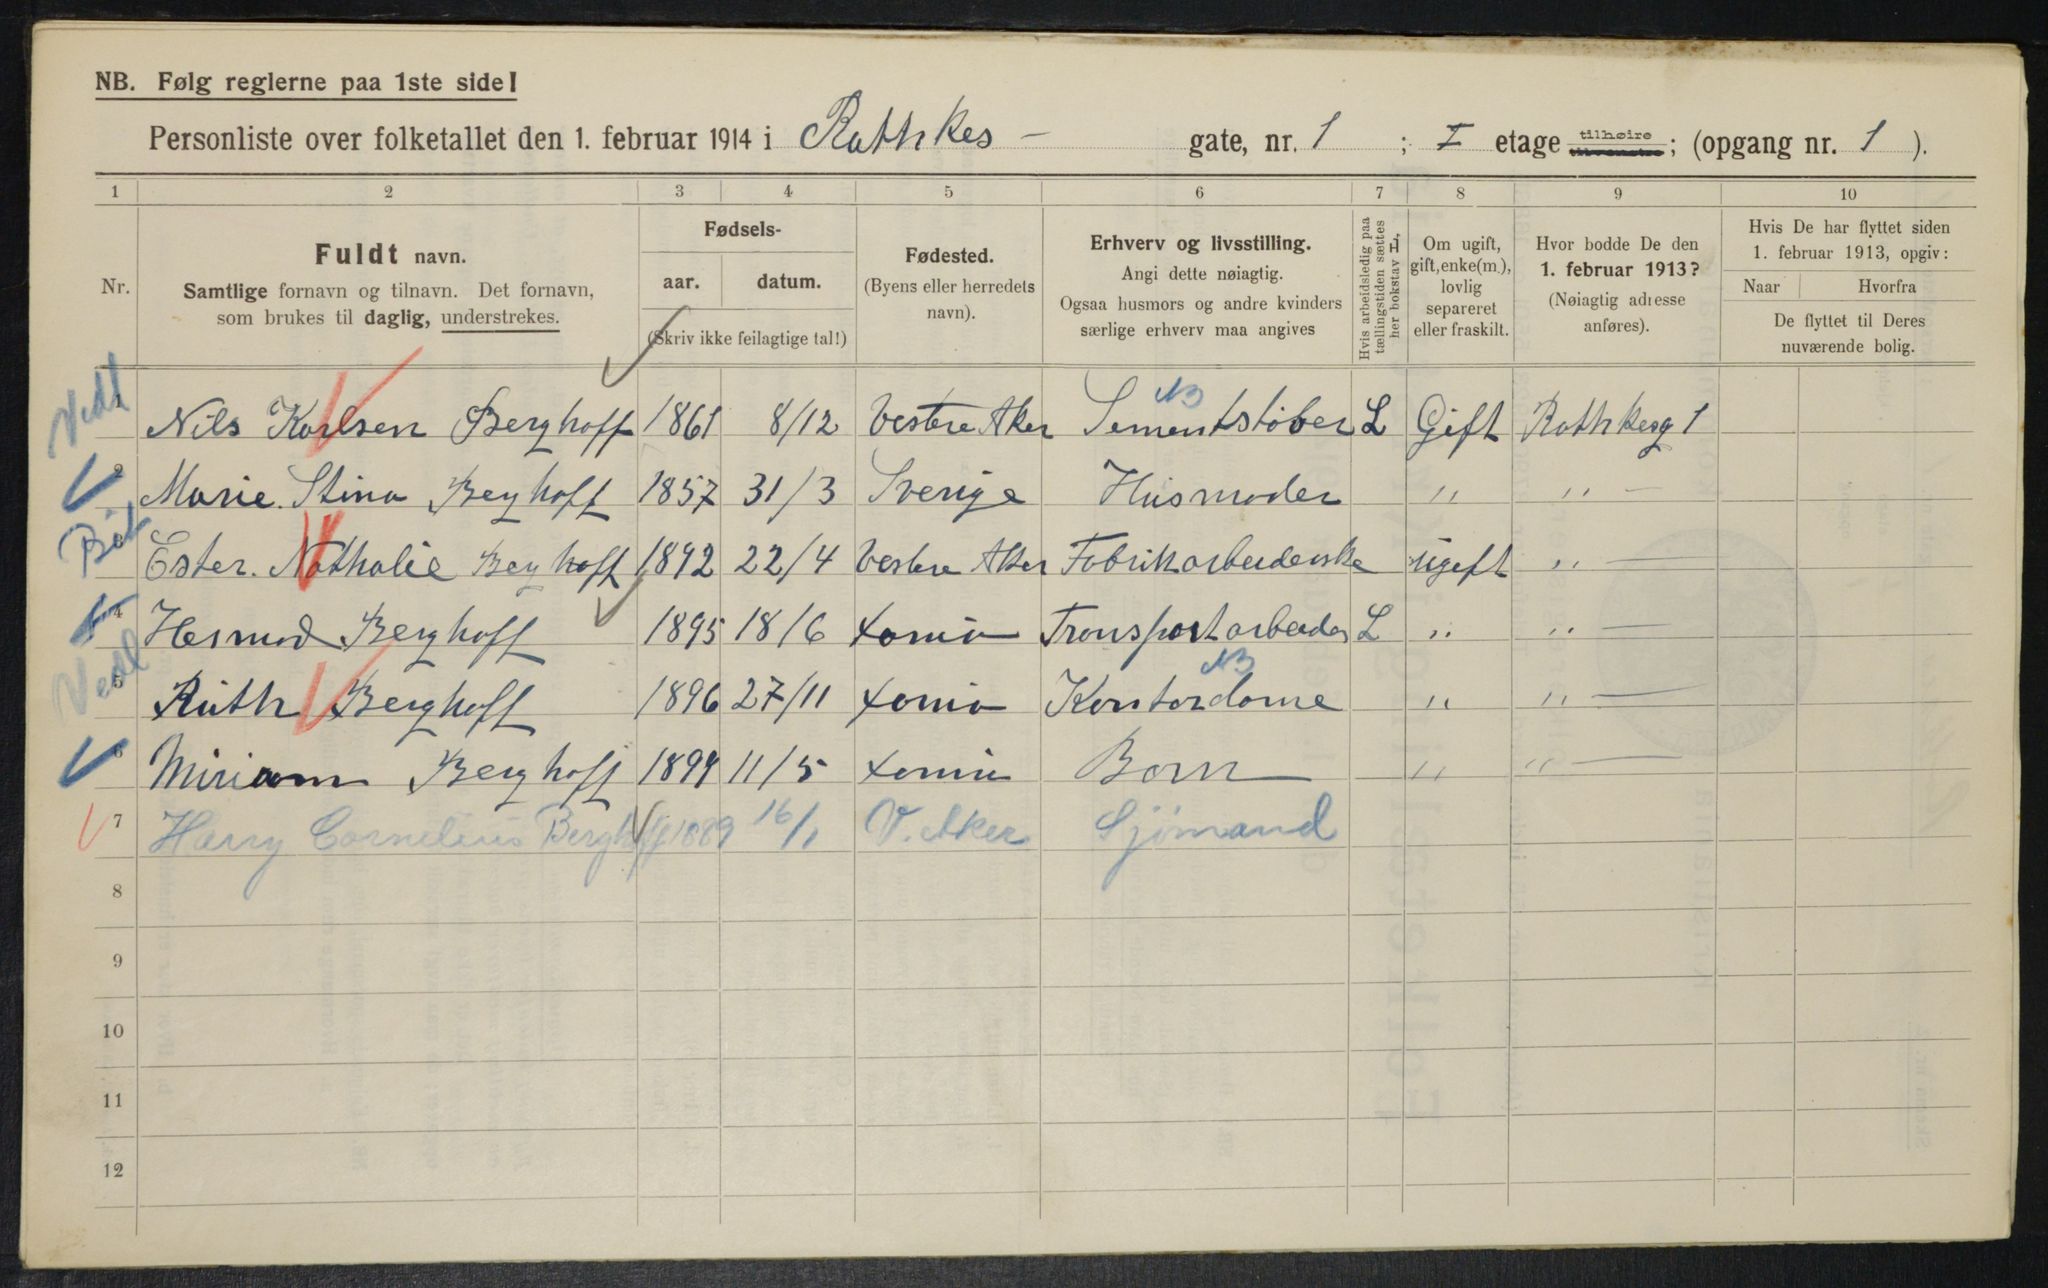 NB. Følg reglerne paa 1ste side!
Personliste over folketallet den 1. februar 1914 i Rathkes - gate, nr. 1 ; I etage tilhøire tilvenstre; (opgang nr. 1 ).
1 2 3 4 5 6 7 8 9 10
Nr.
Fuldt navn.
Samtlige fornavn og tilnavn. Det fornavn,
som brukes til daglig, understrekes.
Fødsels-
aar. datum.
(Skriv ikke feilagtige tal!)
Fødested.
(Byens eller herredets
navn).
Erhverv og livsstilling.
Angi dette nøiagtig.
Ogsaa husmors og andre kvinders
særlige erhverv maa angives
Hvis arbeidsledig paa
tællingstiden sættes
her bokstav L.
Om ugift,
gift, enke(m.),
lovlig
separeret
eller fraskilt.
Hvor bodde De den
1. februar 1913?
(Nøiagtig adresse
anføres).
Hvis De har flyttet siden
1. februar 1913, opgiv:
Naar Hvorfra
De flyttet til Deres
nuværende bolig.
NB
1 Nils Karlsen Berghoff 1861 8/12 Vestre Aker Sementstöber L Gift Rathkesg 1
2 Marie Stina Berghoff 1857 31/3 Sverige Husmoder " " —
3 Ester Nathalie Berghoff 1892 22/4 Vestre Aker Fabrikarbeiderske ugift " —
4 Hermod Berghoff 1895 18/6 Xania Transportarbeider L " " —
NB
5 Ruth Berghoff 1896 27/11 Xania Kontordame " " —
6 Miriam Berghoff 1899 11/5 Xania Barn " " —
7 Harry Cornelius Berghoff 1889 16/1 V. Aker Sjömand
8
9
10
11
12